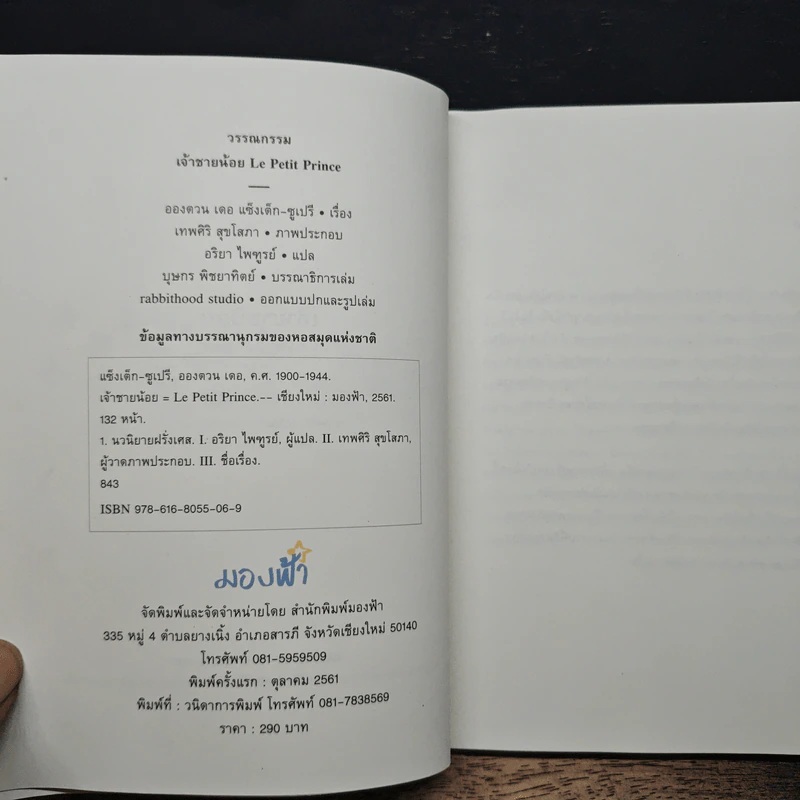 วรรณกรรม
เจ้าชายน้อย Le Petit Prince
อองตวน เดอ แซ็งเต็ก-ซูเปรี • เรื่อง
เทพศิริ สุขโสภา • ภาพประกอบ
อริยา ไพฑูรย์ • แปล
บุษกร พิชยาทิตย์ • บรรณาธิการเล่ม
rabbithood studio • ออกแบบปกและรูปเล่ม
ข้อมูลทางบรรณานุกรมของหอสมุดแห่งชาติ
แซ็งเต็ก-ซูเปรี, อองตวน เดอ, ค.ศ. 1900-1944.
เจ้าชายน้อย = Le Petit Prince.-- เชียงใหม่ : มองฟ้า, 2561.
132 หน้า.
1. นวนิยายฝรั่งเศส. I. อริยา ไพฑูรย์, ผู้แปล. II. เทพศิริ สุขโสภา,
ผู้วาดภาพประกอบ. III. ชื่อเรื่อง.
843
ISBN 978-616-8055-06-9
มองฟ้า
จัดพิมพ์และจัดจำหน่ายโดย สำนักพิมพ์มองฟ้า
335 หมู่ 4 ตำบลยางเนิ้ง อำเภอสารภี จังหวัดเชียงใหม่ 50140
โทรศัพท์ 081-5959509
พิมพ์ครั้งแรก : ตุลาคม 2561
พิมพ์ที่ : วนิดาการพิมพ์ โทรศัพท์ 081-7838569
ราคา : 290 บาท